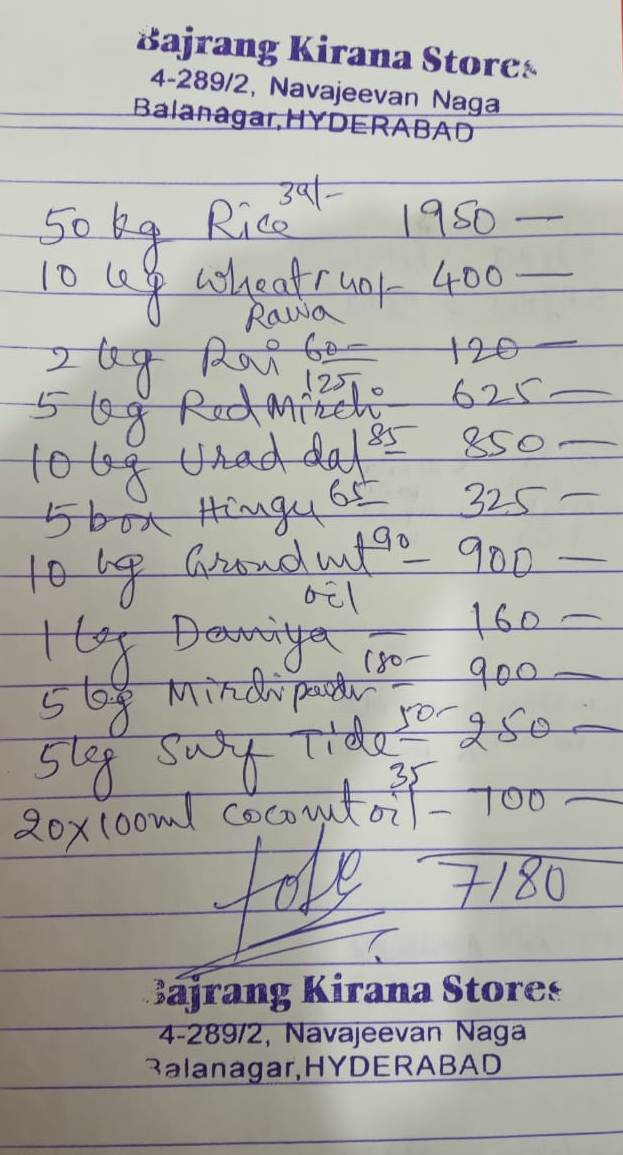 Bajrang Kirana Stores
4-289/2, Navajeevan Naga
Balanagar, HYDERABAD
50 kg Rice 39/- 1950 —
10 kg wheat r 40/- 400 —
Rawa
2 kg Rai 60— 120 —
5 kg Red Mirchi 125 — 625 —
10 kg Urad dal 85 — 850 —
5 box Hingu 65 — 325 —
10 kg Grondnut 90 — 900 —
oil
1 kg Daniya — 160 —
5 kg Mirchi powdr 180— — 900 —
5 kg Surf Tide 50— — 250 —
20x100ml coconut oil 35 — 700 —
7180
Bajrang Kirana Stores
4-289/2, Navajeevan Naga
Balanagar, HYDERABAD